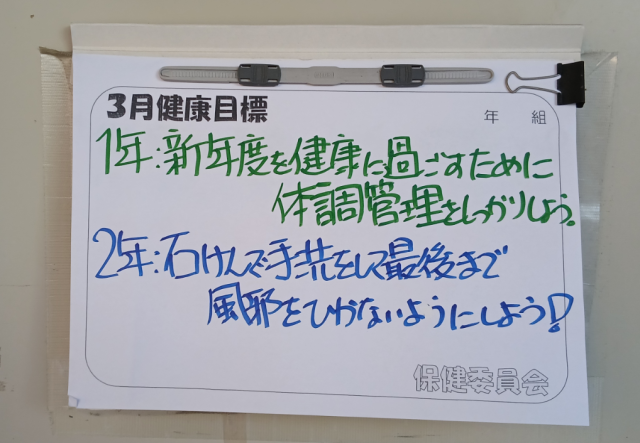 3月健康目標
年 組
1年:新年度を健康に過ごすために
体調管理をしっかりしよう。
2年:石けんで手洗をして最後まで
風邪をひかないようにしよう!
保健委員会